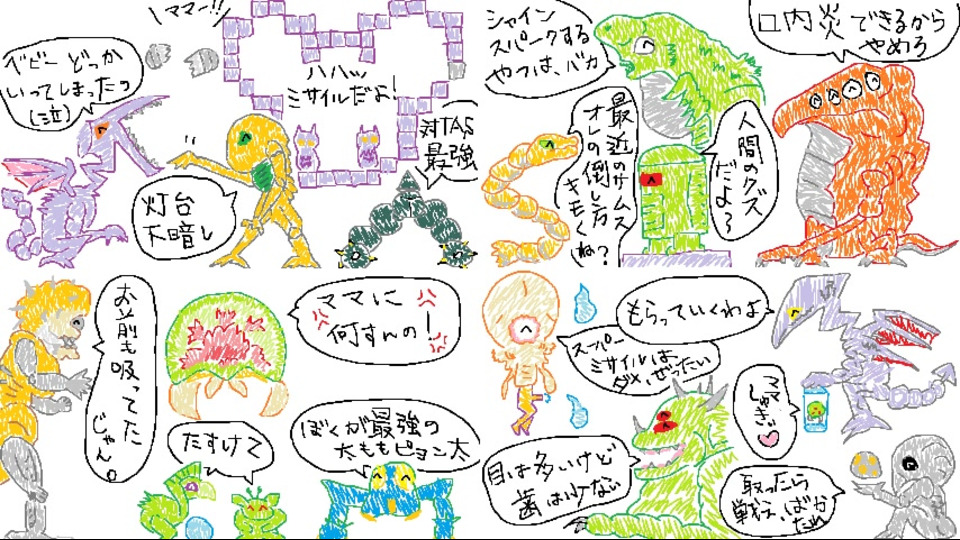 ママー!!
ベビーどっか
いってしまったの
(泣)
ハハッ
ミサイルだよ!
対TAS
最強
灯台
下暗し
シャイン
スパークする
やつは、バカ
口内炎できるから
やめろ
最近のサムス
オレの倒し方
キモくね?
人間のクズ
だよ〜
お前も吸ってた
じゃん。
ママに
何すんの!
たすけて
ぼくが最強の
太ももピョン太
もらっていくわよ
スーパー
ミサイルは、
ダメ、ぜったい
目は多いけど
歯は少ない
ママ
取ったら
戦え、ばか
たれ